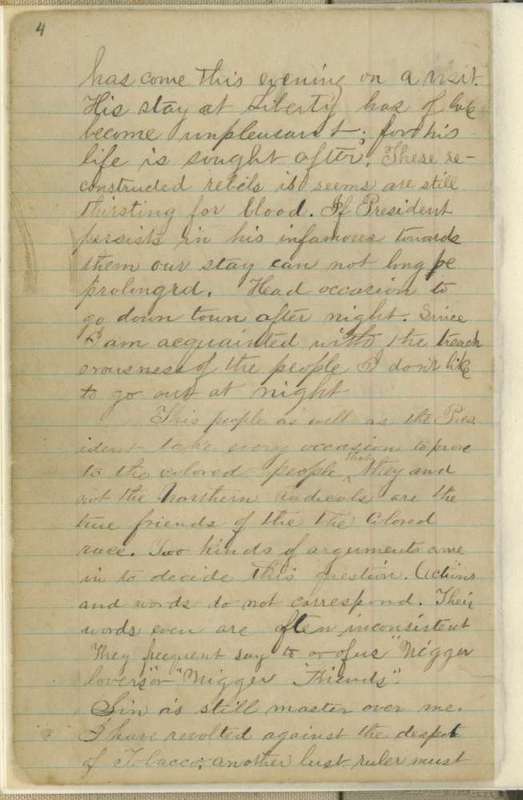 4
has come this evening on a visit.
His stay at Liberty has of late
become unpleasant; for his
life is sought after. These re-
constructed rebels it seems are still
thirsting for blood. If President
persists in his infamous towards
them our stay can not long be
prolonged. Had occasion to
go down town after night. Since
I am acquainted with the treach
erousness of the people I don't like
to go out at night
This people as well as the Pres
ident take every occasion to prove
to the colored people that they and
not the Northern radicals are the
true friends of the the Colored
race. Two kinds of arguments come
in to decide this question. Actions
and words do not correspond. Their
words even are often inconsistent
They frequent say to or of us "Nigger
lovers" or "Nigger Friends".
Sin is still master over me.
I have revolted against the despot
of Tobacco; another lust ruler must